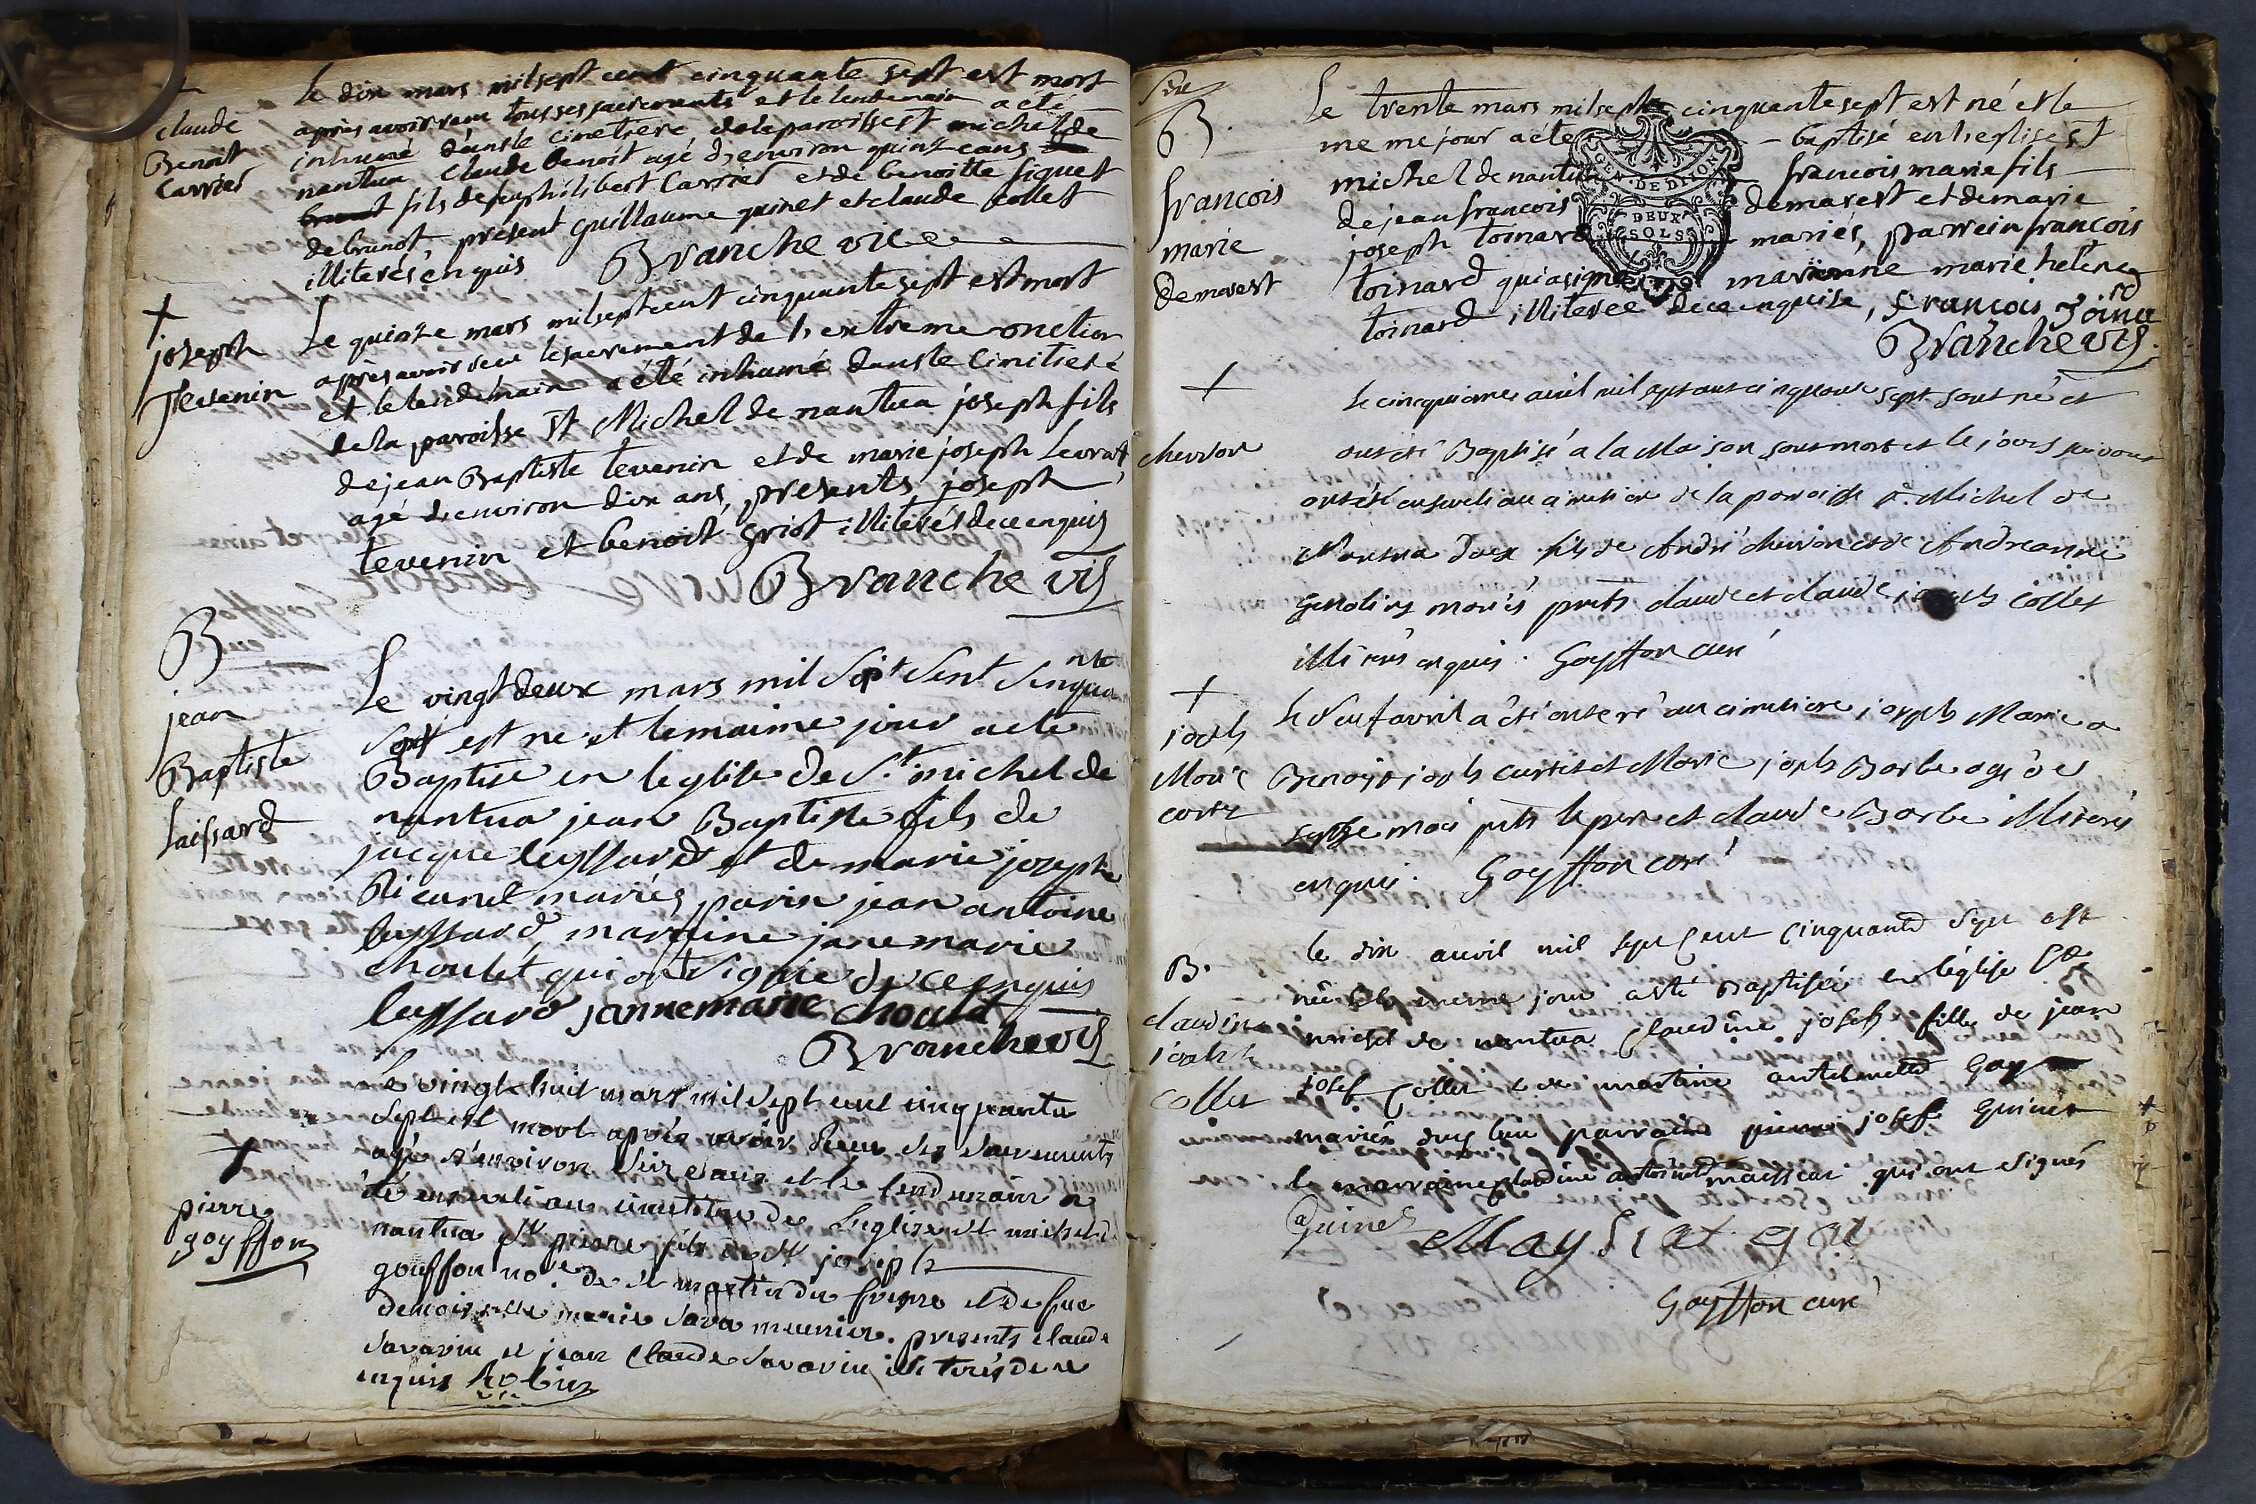 claude
Benoit
Carrier
le dix mars mil sept cent cinquante sept est mort
apres avoir receu tous ses sacrements et le lendemain a eté
inhumé dans le cimetiere de la paroisse st michel de
nantua claude benoit agé d'environ quinze ans
fils de feu philibert Carrier et de benoitte figuet
de brunot, present guillaume guinet et claude collet
illiterés enquis Branche vic
+
joseph
Tevenin
Le quinze mars mil sept cent cinquante sept est mort
apres avoir receu le sacrement de l'extreme onction
et le lendemain a été inhumé dans le cimitieré
de la paroisse st Michel de nantua joseph fils
de jean Baptiste tevenin et de marie joseph Levrat
agé d'environ dix ans, presents joseph
tevenin et benoit griot illiterés de ce enquis
Branche vis
B
jean
Baptiste
laissard
Le vingt deux mars mil sept sent sinquante
sept est ne et le maime jour a ete
Baptise en leglise de St michel de
nantua jean Baptiste fils de
jacque leyssard et de marie joseph
Ricanet mariés parin jean antoine
leyssard maraine jane marie
choulet qui ont signie de ce enquis
leyssard jannemarie choulet
Branche vis
+
pierre
goyffon
Le vingt huit mars mil sept cent cinquante
sept est mort après avoir receu ses sacrements
agé d'environ seize ans et le lendemain a
été enseveli au cimetiere de l'eglise st michel de
nantua sr pierre fils de sr joseph
gouffon nore de st martin du fresne et de fue
demoiselle marie sara meunier. presents claude
savarin et jean claude savarin illiterés de ce
enquis Robin
vic
B
francois
marie
demarest
Le trente mars mil sept cinquante sept est né et le
meme jour a ete baptisé en l'eglise st
michel de nantua francois marie fils
de jean francois demarest et de marie
joseph toinard mariés, parrein francois
toinard qui a signé marienne marie helene
toinard illiteree de ce enquise, françois Toinard
Branche vis
GEN. DE DIJON
DEUX
SOLS
+
chevron
le cinquieme avril mil sept cent cinquante sept sont né et
ont eté Baptisé a la Maison sont mort et le jour suivant
ont été enseveli au cimetiere de la paroisse st Michel de
Nantua deux fils de André chevron et de Andreanne
genolin mariés pnts claude et claude joseph Collet
illiterés enquis. Goyffon curé
+
joseph
Marie
cortez
le neuf avril a été enterré au cimetiere joseph Marie a
Benoist joseph curtet et Marie joseph Barbe agé de
mois pnts le pere et claude Barbe illiterés
enquis. Goyffon curé
B.
claudine
joseph
Collet
le dix auvil mil sept cent cinquante sept est
née et le meme jour a ete Baptisée en l'église st
michel de nantua claudine joseph fille de jean
josef Collet et de martine antelmette Gay
mariés parrain pierre josef guinet
la marraine claudine antoinette maissiat qui ont signés
Guinet Maysiat gat
Goyffon curé